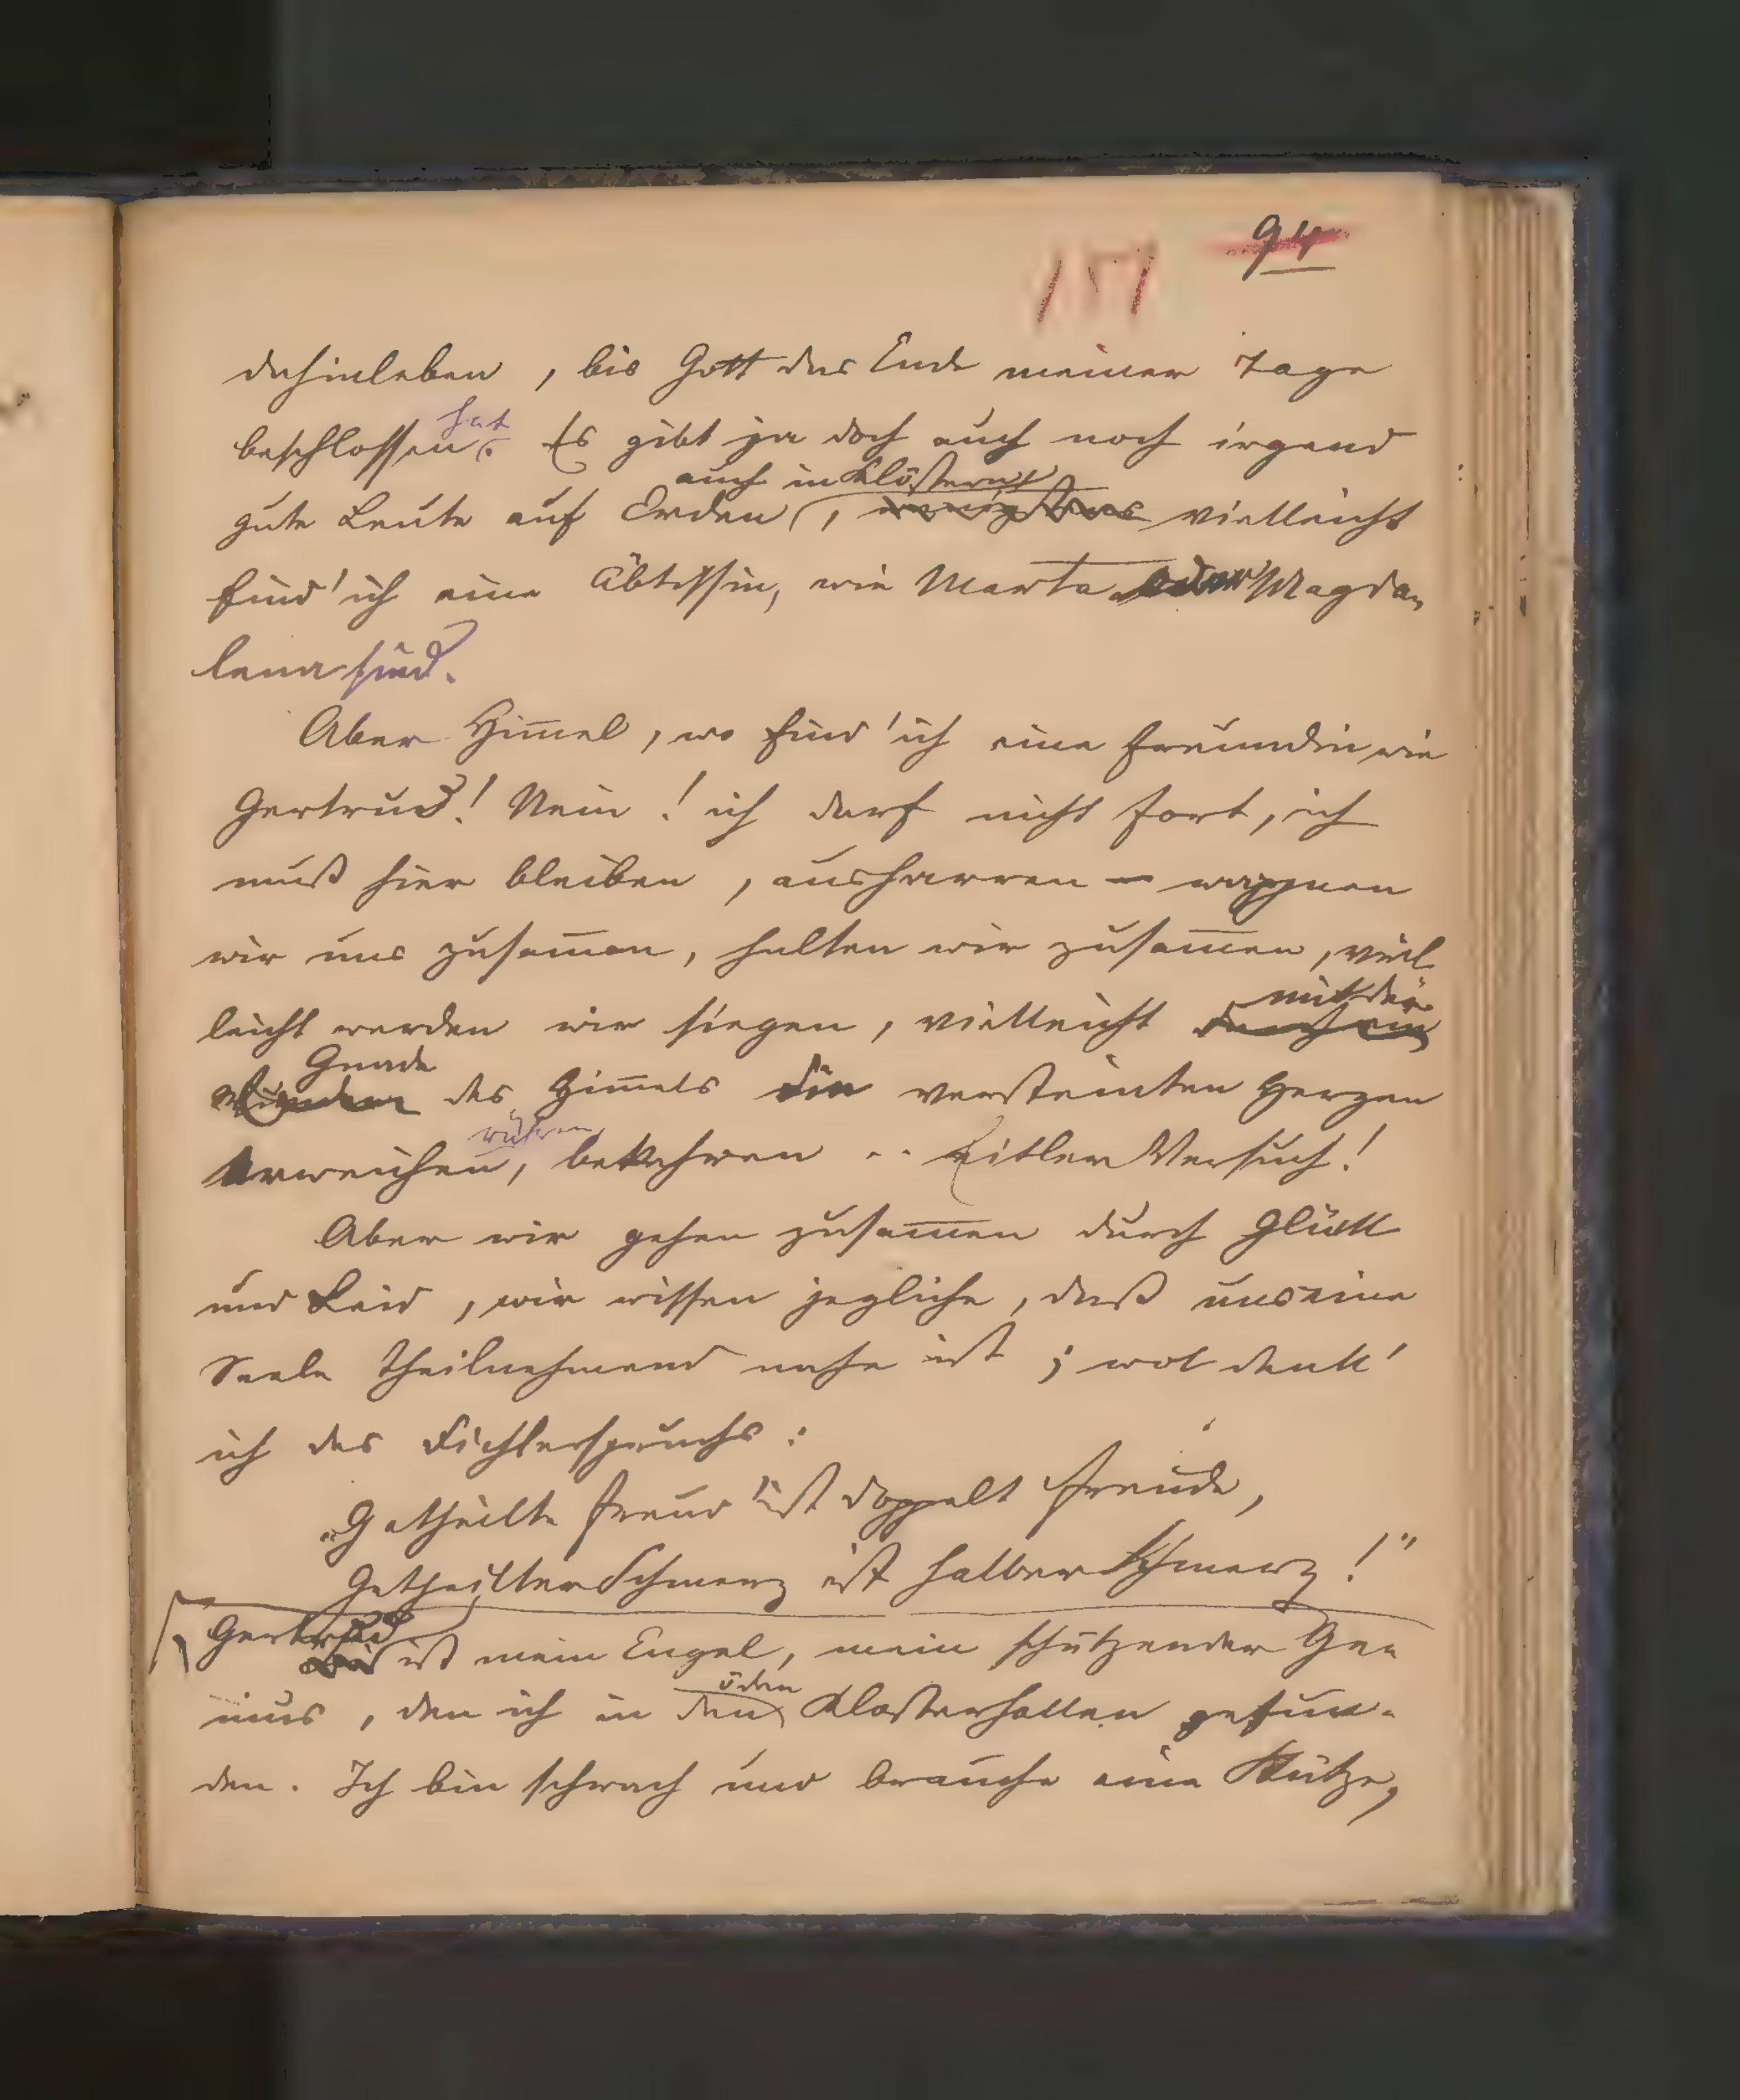 94
151
dahinleben, bis Gott das Ende meiner Tage
beschlossen hat. Es gibt ja doch auch noch irgend
gute Leute auf Erden, auch in Klöstern, wenigstens vielleicht
find' ich eine Äbtissin, wie Marta oder Magda-
lena sind.
Aber Him̅el, wo find' ich eine Freundin wie
Gertrud! Nein! ich darf nicht fort, ich
muß hier bleiben, ausharren – wappnen
wir uns zusam̅en, halten wir zusam̅en, viel
leicht werden wir siegen, vielleicht durch ein mit der
Wunder Gnade des Him̅els die versteinten Herzen
erweichen, rühren, bekehren .. Eitler Versuch!
Aber wir gehen zusam̅en durch Glück
und Leid, wir wissen jegliche, daß uns eine
Seele theilnehmend nahe ist; wol denk'
ich des Dichterspruchs:
„Getheilte Freud' ist doppelt Freude,
Getheilter Schmerz ist halber Schmerz!"
Gertrud ist mein Engel, mein schützender Ge-
nius, den ich in den öden Klosterhallen gefun-
den. Ich bin schwach und brauche eine Stütze,